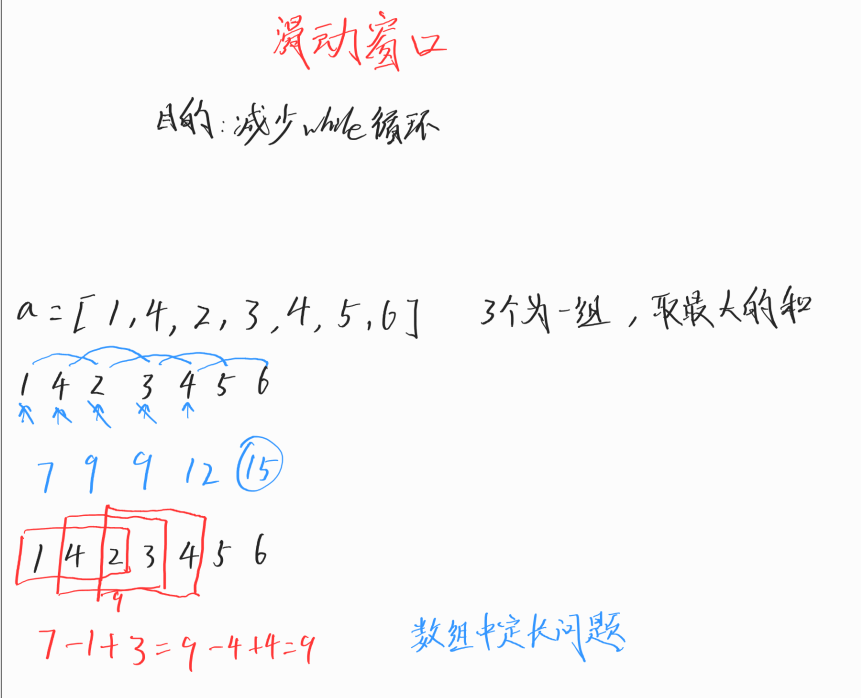 滑动窗口
目的:减少while循环
a=[1,4,2,3,4,5,6] 3个为一组,取最大的和
1 4 2 3 4 5 6
7 9 9 12 15
1 4 2 3 4 5 6
9
7-1+3=9-4+4=9
数组中定长问题